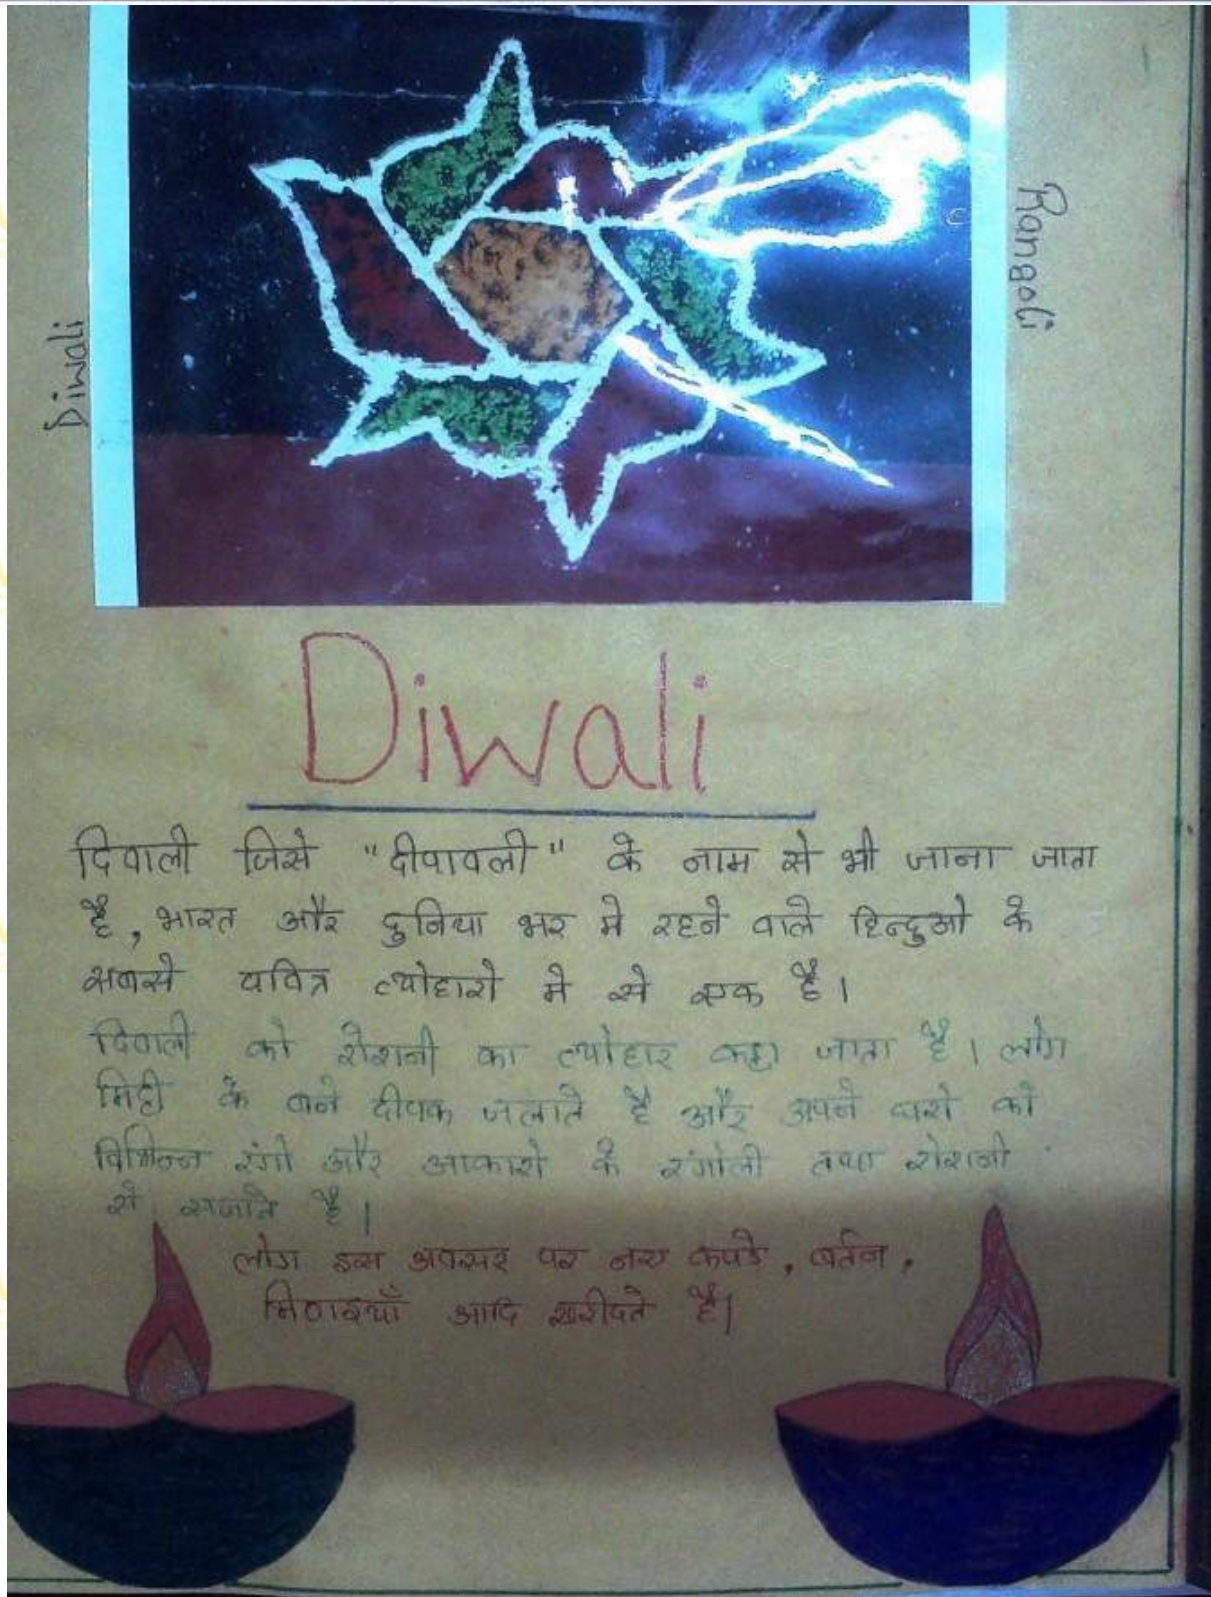 Diwali
Rangoli
Diwali
दिवाली जिसे "दीपावली" के नाम से भी जाना जाता
है, भारत और दुनिया भर मे रहने वाले हिन्दुओ के
सबसे पवित्र त्योहारो मे से एक है।
दिवाली को रोशनी का त्योहार कहा जाता है। लोग
मिट्टी के बने दीपक जलाते है और अपने घरो को
विभिन्न रंगो और आकारो के रंगोली तथा रोशनी
से सजाते है।
लोग इस अवसर पर नए कपडे, बर्तन,
मिठाइयाँ आदि खरीदते है।